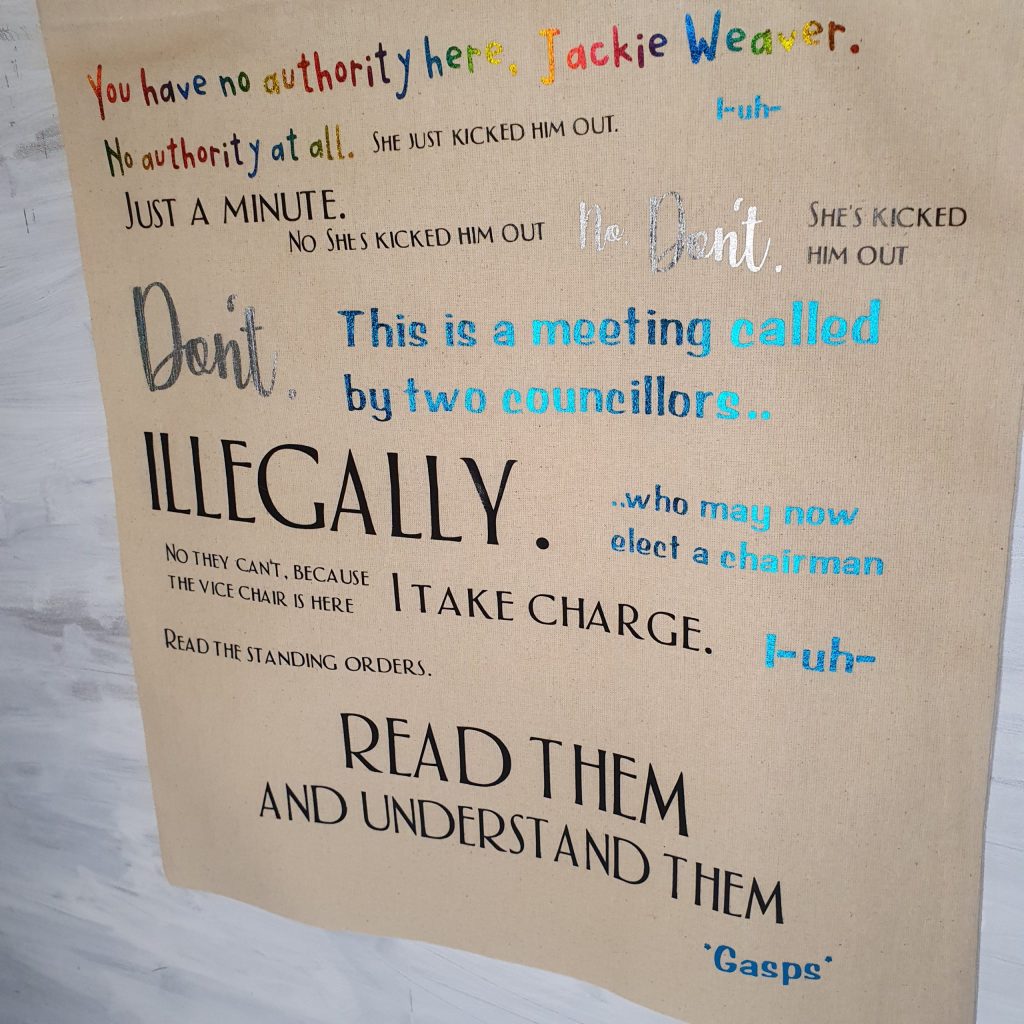 You have no authority here, Jackie Weaver.
No authority at all.
She just kicked him out.
I-uh-
Just a minute.
No She's kicked him out
No. Don't.
She's kicked
him out
Don't.
This is a meeting called
by two councillors..
Illegally.
..who may now
elect a chairman
No they can't, because
the vice chair is here
I take charge.
I-uh-
Read the standing orders.
Read them
and understand them
*Gasps*